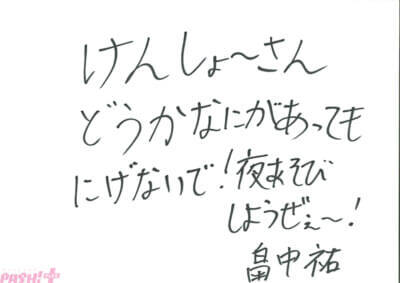 けんしょ〜さん
どうかなにがあっても
にげないで！夜あそび
しようぜぇ〜！
畠中祐
PASH!+